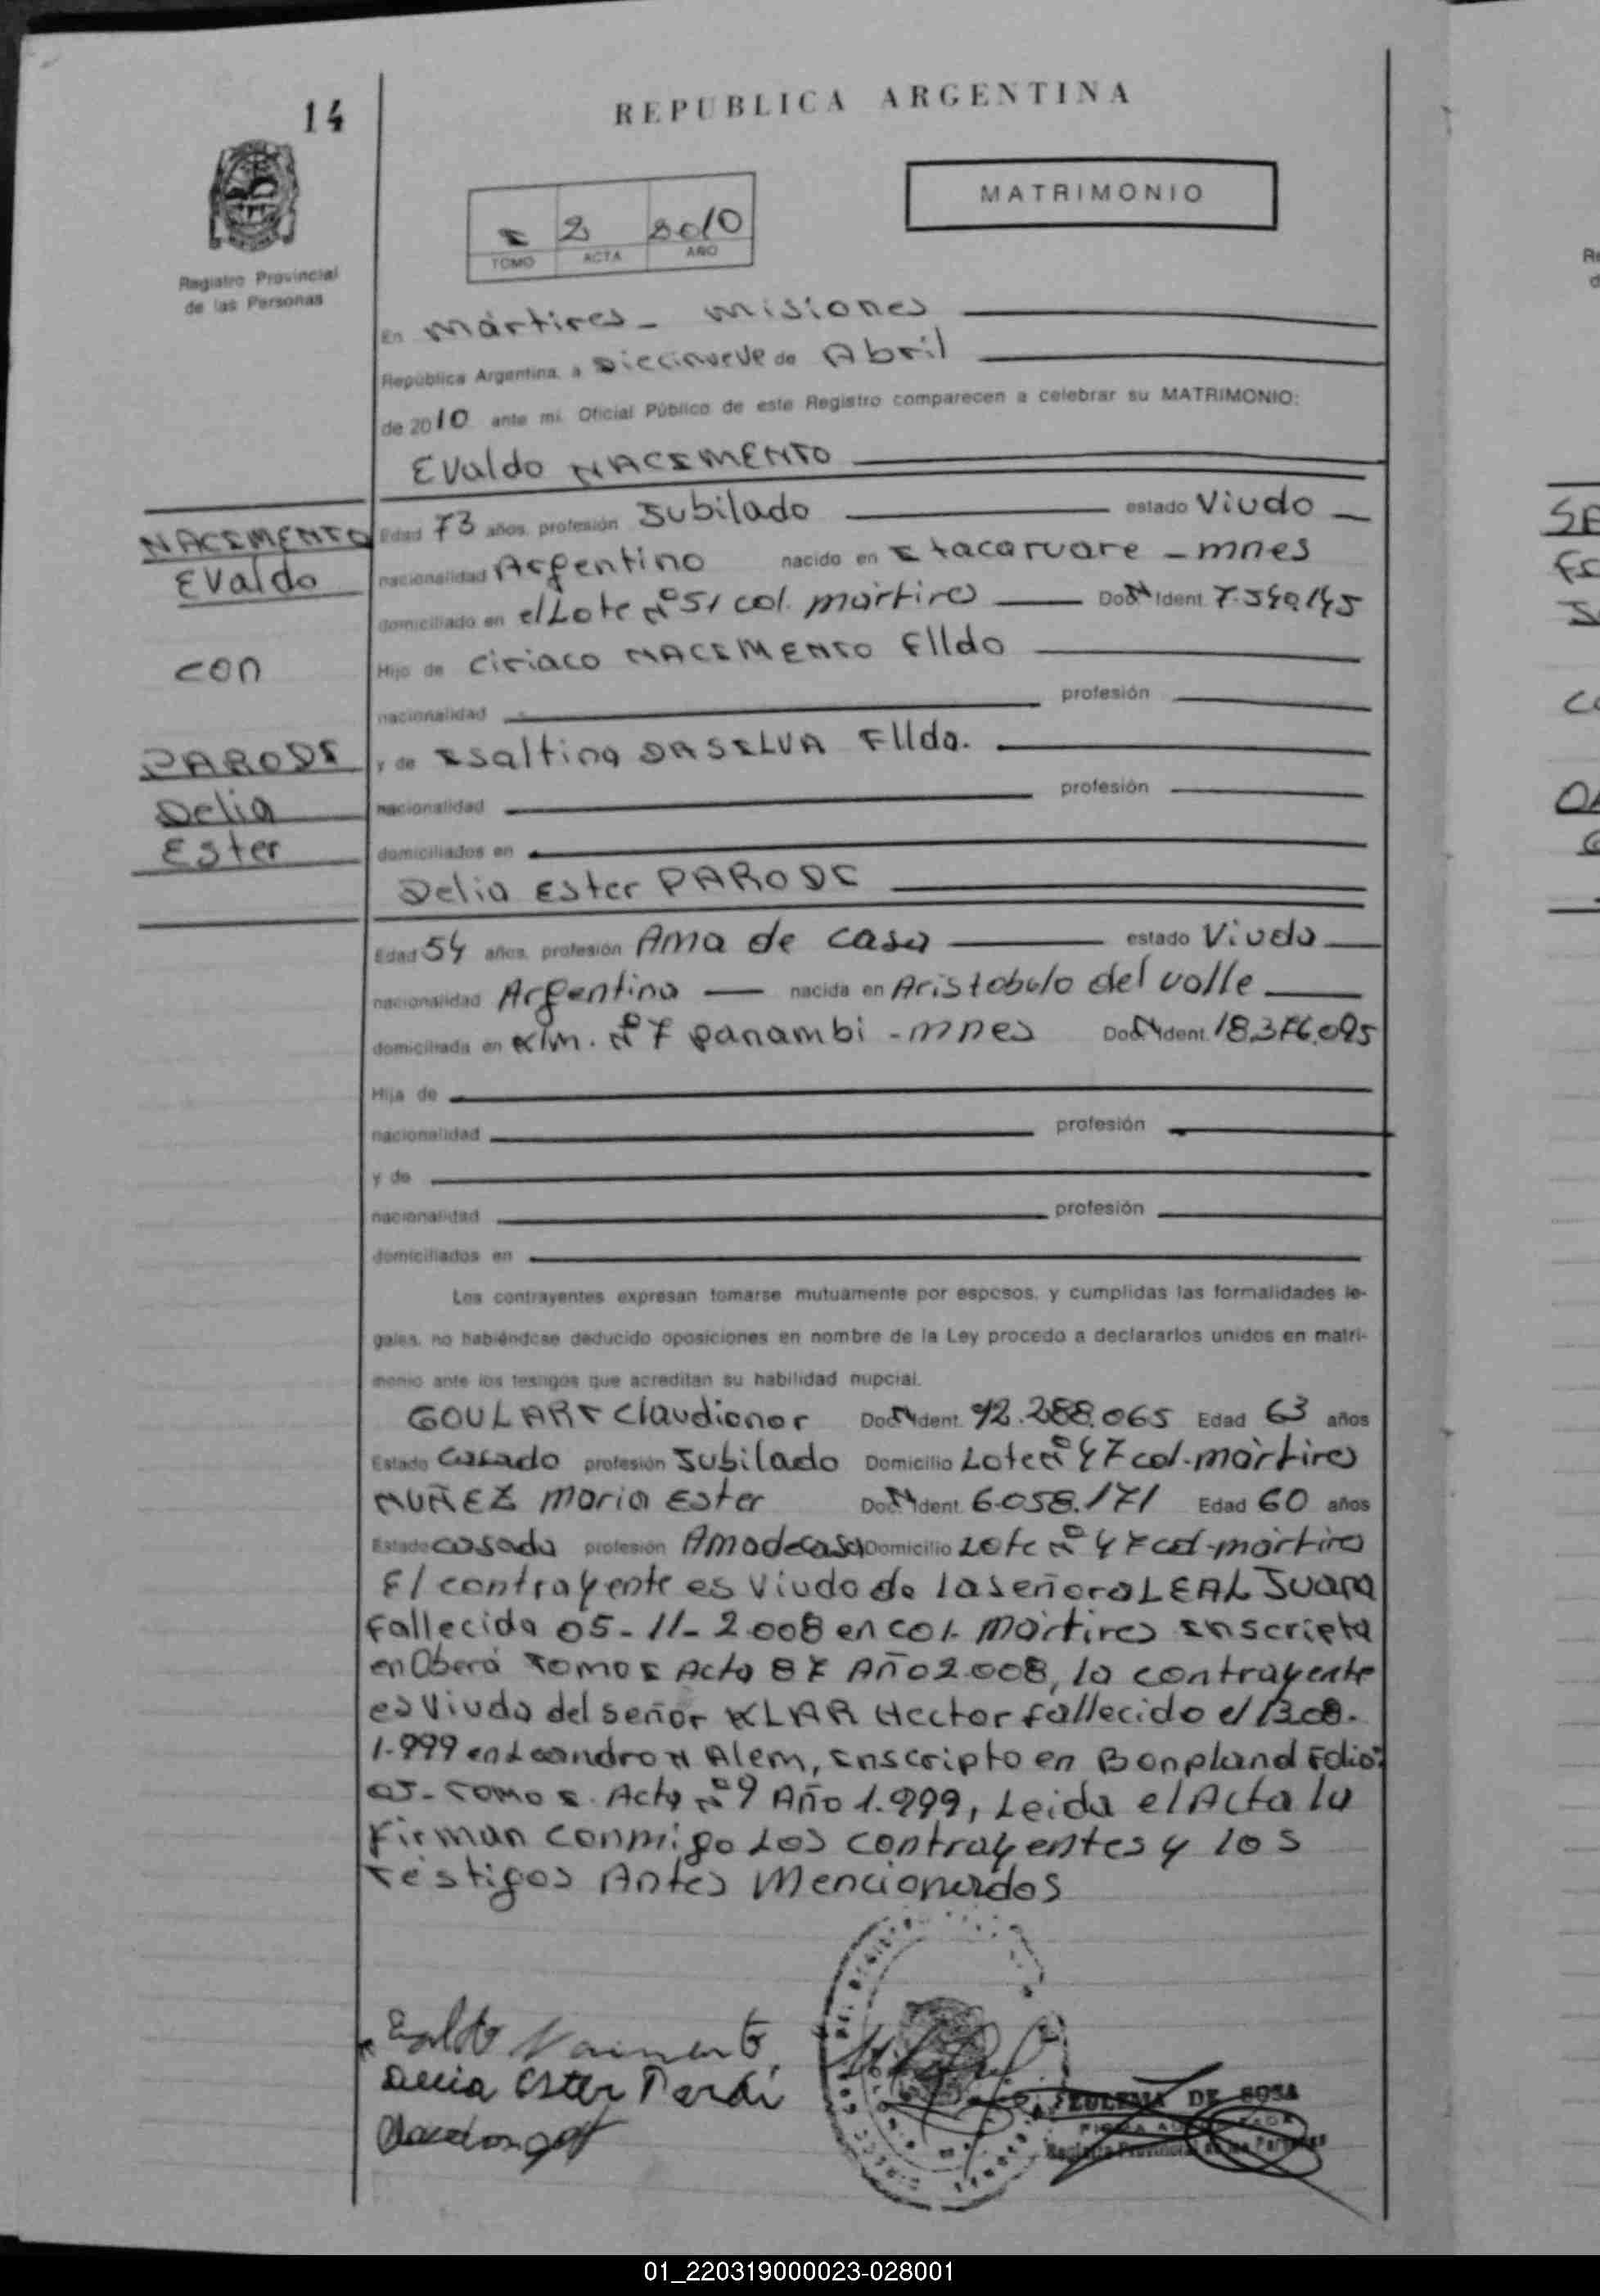 14
REPUBLICA ARGENTINA
MATRIMONIO
I 2 2010
TOMO ACTA AÑO
Registro Provincial
de las Personas
En Mártires - Misiones
República Argentina, a Diecinueve de Abril
de 2010 ante mi. Oficial Público de este Registro comparecen a celebrar su MATRIMONIO:
Evaldo NACIMENTO
NACIMENTO
Evaldo
con
PARODI
Delia
Ester
Edad 73 años, profesión Jubilado estado Viudo
nacionalidad Argentino nacido en Itacaruare - mnes
domiciliado en el Lote Nº 51 col. mártires Doc. N Ident. 7.540.145
Hijo de Ciriaco NACIMENTO Flldo
nacionalidad profesión
y de Isaltina DASILVA Flldo.
nacionalidad profesión
domiciliados en
Delia Ester PARODI
Edad 54 años, profesión Ama de casa estado Viuda
nacionalidad Argentina nacida en Aristobulo del valle
domiciliada en Klm. Nº 7 panambi - mnes Doc. N Ident. 18.376.095
Hija de
nacionalidad profesión
y de
nacionalidad profesión
domiciliados en
Los contrayentes expresan tomarse mutuamente por esposos, y cumplidas las formalidades le-
gales, no habiéndose deducido oposiciones en nombre de la Ley procedo a declararlos unidos en matri-
monio ante los testigos que acreditan su habilidad nupcial.
GOULART Claudionor Doc. N Ident. 92.288.065 Edad 63 años
Estado Casado profesión Jubilado Domicilio Lote Nº 47 col. mártires
NUÑEZ Maria Ester Doc. N Ident. 6.058.171 Edad 60 años
Estado casada profesión Ama de casa Domicilio Lote Nº 47 col. mártires
El contrayente es Viudo de la señora LEAL Juana
Fallecida 05-11-2.008 en col. Mártires Inscripta
en Oberá Tomo I Acta 87 Año 2.008, la contrayente
es Viuda del señor KLAR Hector fallecido el 13.08.
1.999 en Leandro N Alem, Inscripto en Bonpland Folio:
05- Tomo I. Acta Nº 9 Año 1.999, Leida el Acta la
Firman conmigo Los contrayentes y los
Testigos Antes Mencionados
Delia Ester Parodi
ZULEMA DE SOSA
FIRMA AUTORIZADA
Registro Provincial de las Personas
01_220319000023-028001